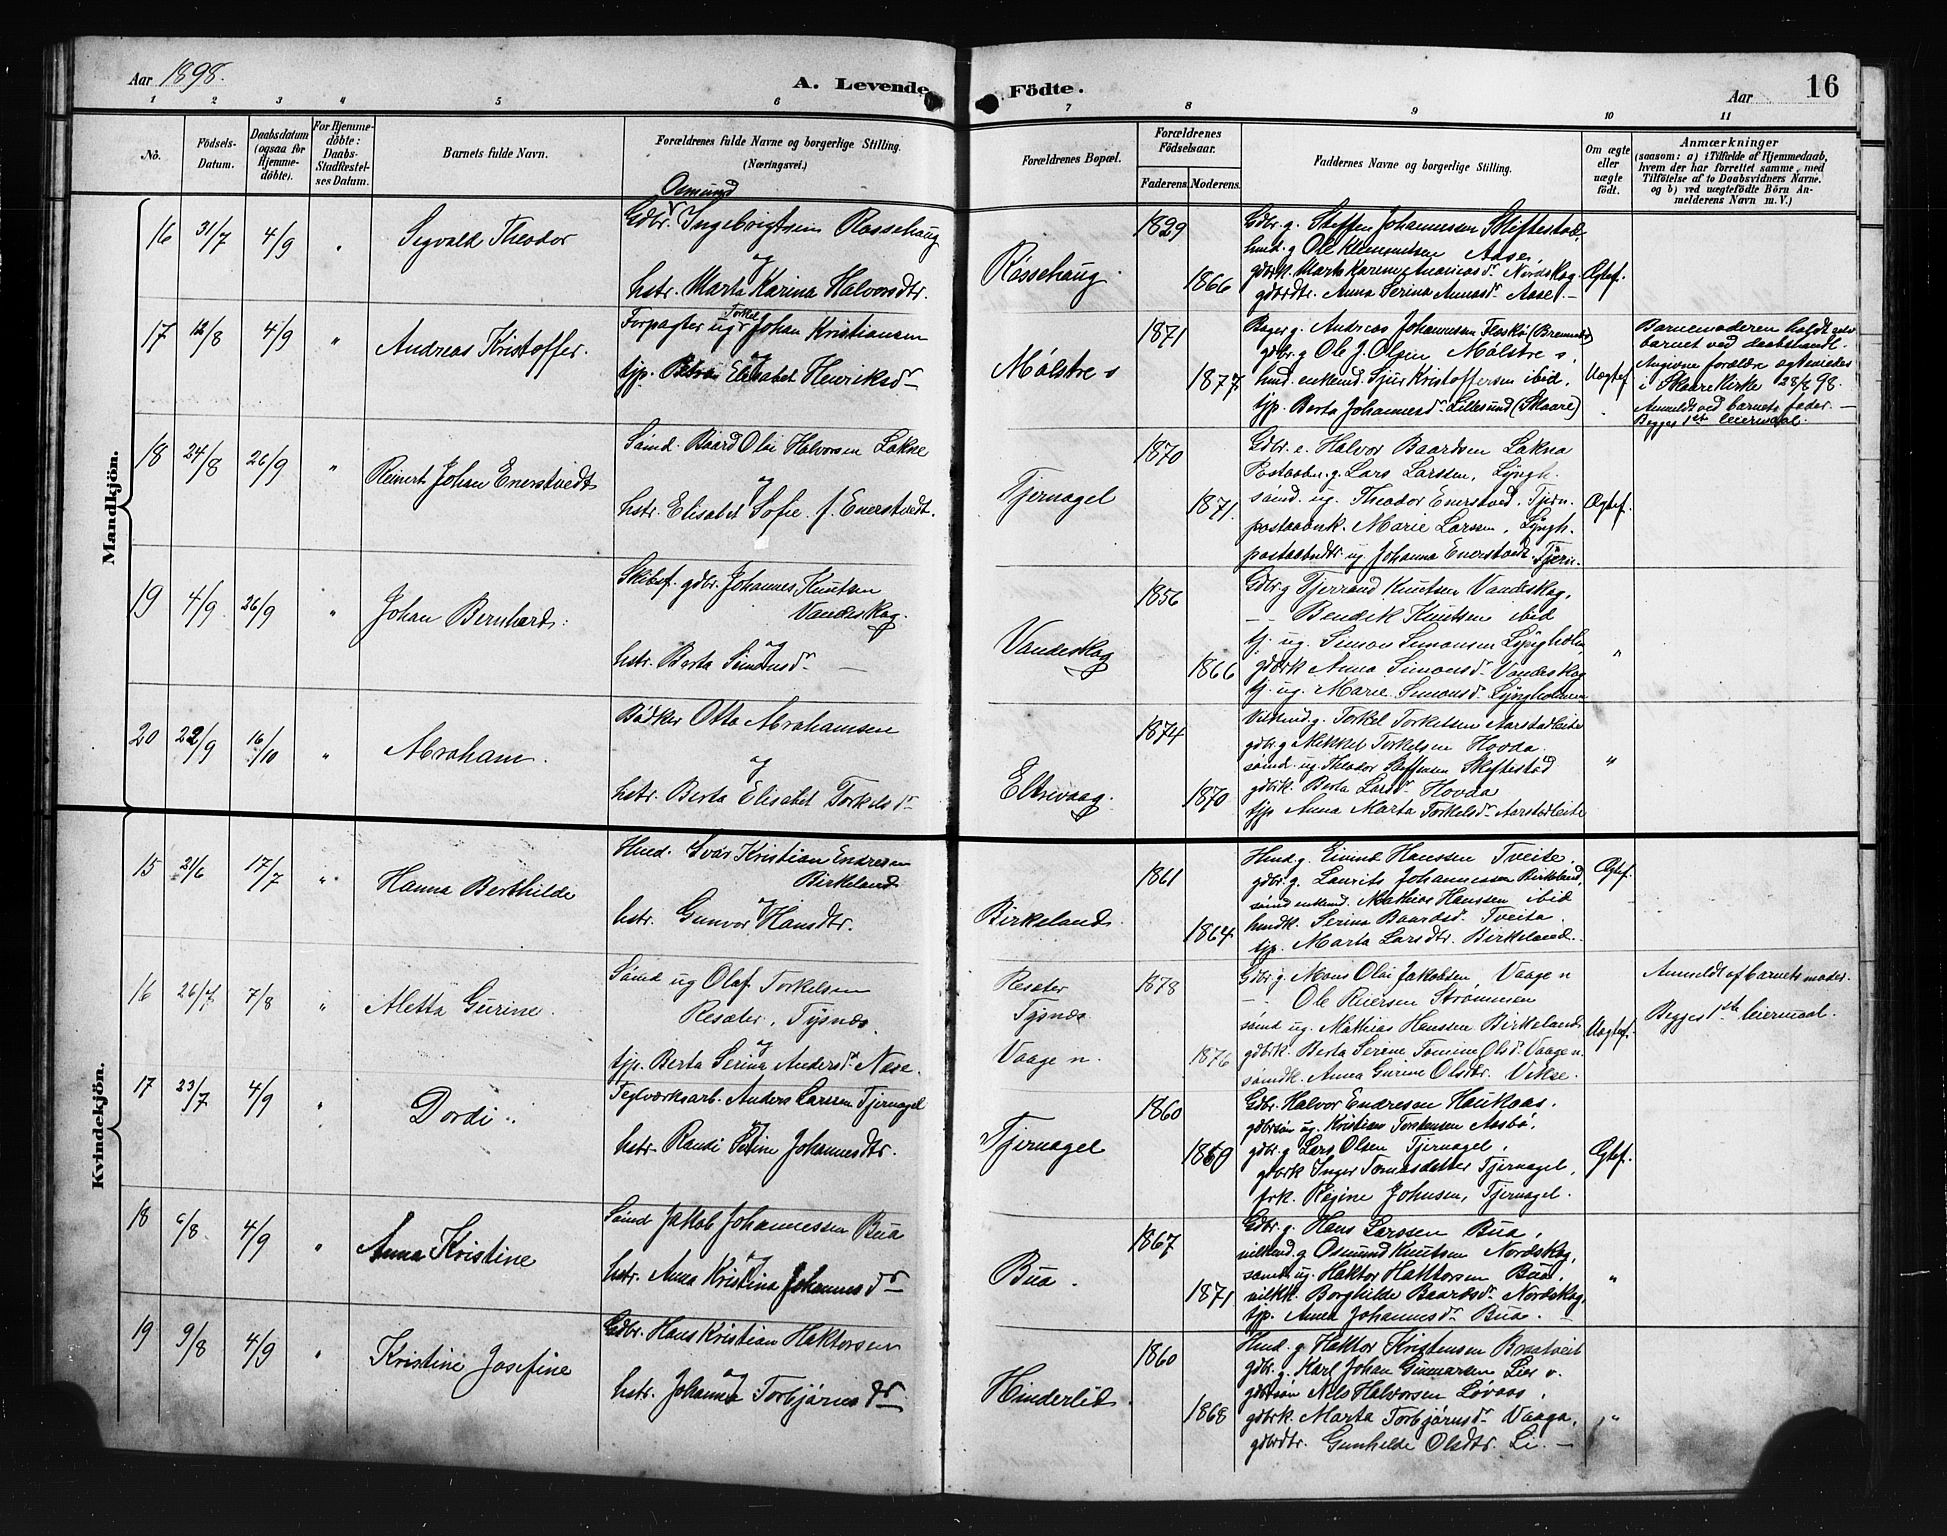 Aar 1898.
A. Levende Födte.
Aar
16
1 2 3 4 5 6 7 8 9 10 11
No.
Födsels-Datum.
Daabsdatum (ogsaa for Hjemmedöbte).
For Hjemmedöbte: Daabs-Stadfæstelses Datum.
Barnets fulde Navn.
Forældrenes fulde Navne og borgerlige Stilling. (Næringsvei.)
Forældrenes Bopæl.
Forældrenes Födselsaar.
Faderens. Moderens.
Faddernes Navne og borgerlige Stilling.
Om ægte eller uægte födt.
Anmærkninger
(saasom: a) i Tilfælde af Hjemmedaab, hvem der har forrettet samme, med Tilföielse af to Daabsvidners Navne, og b) ved uægtefödte Börn Anmelderens Navn m. V.)
Mandkjön.
16 31/7 4/9 " Sigvald Theodor
Osmund
Gdbr. Ingebrigtsen Røssehaug
og
hstr. Marta Karina Halvorsdtr.
Røssehaug.
1829
1866
Gdbr. g. Steffen Johannessen Skiftestad,
hmd. g Ole Klemmetsen Aase,
gdbrk. Marta Karine Nordskog.
gdbrdtr. Anna Serina Aase. —
Ægtef.
17 12/8 4/9 " Andreas Kristoffer.
Forpagter ug. Torkel Johan Kristiansen
og
tjp. Elisabet Henriksdr
Mølstre s
1871
1877.
Bager g. Andreas Johannesen
gdbr. g Ole J. Olsen Mølstre s,
hmd. enkemd. Sjur Kristoffersen ibid,
tjp. Berta Johannesdr Lillesund (Skaare)
Uægtef.
Barnemoderen holdt selv
barnet ved daabshandl.
Angivne forældre ægteviedes
i Skaare kirke 28/8 98.
Anmeldt ved barnets fader. —
Begges 1ste leiermaal.
18 24/8 26/9 " Reinert Johan Enerstvedt
Sømd. Baard Olai Halvorsen Lokne
og
hstr. Elisabet Sofie f. Enerstvedt.
Tjernagel
1870
1871.
Gdbr. e. Halvor Baardsen Lokna
Postaabn. g. Lars Larssen, Lyngh.
sømd. ug. Theodor Enerstved. Tjern.
postaabnk. Marie Larssen, Lyngh.
postaabndtr. ug. Johanna Enerstvedt. Tjern.
Ægtef.
19 4/9 26/9 " Johan Bernhard.
Skibsf. gdbr. Johannes Knutsen
Vandeskog.
og
hstr. Berta Simonsdr —
Vandeskog
1856
1866
Gdbr g Tjerrand Knutsen Vandeskog,
— Bendik Knutsen ibid
tj. ug. Simon Simonsen Lyngholm,
gdbrk Anna Simonsdr Vandeskog
tj. ug. Marie Simonsdr Lyngholmen
"
20 22/9 16/10 " Abraham.
Bødker Otto Abrahamsen
og
hstr. Berta Elisabet Torkelsdr
Eltrivaag.
1874
1870
g. Torkel Torkelsen Aarstadleite
gdbr. g Mikkel Torkelsen Hovda.
sømd. ug. Theodor Steffensen Skiftestad
gdbrk. Berta Larsdr Hovda
tjp Anna Marta Torkelsdr Aarstadleite
"
Kvindekjön.
15 21/6 17/7 " Hanna Berthilde
Hmd. Ivar Kristian Endresen
Birkeland
og
hstr. Gunvor Hansdtr.
Birkeland.
1861
1864
Hmd g. Eivind Hanssen Tveite.
gdbr. g. Laurits Johannessen Birkeland,
sømd enkemd. Mathias Hanssen ibid
hmdk. Serina Baardsdr Tveita.
tjp. Marta Larsdtr. Birkeland.
Ægtef.
16 26/7 7/8 " Aletta Gurine.
Sømd ug Olaf Torkelsen
Resæter, Tysnes.
og
tjp. Berta Serina Andersdr Nese.
Resæter
Tysnes
Vaage n.
1878
1876
Gdbr g. Mons Olai Jakobsen, Vaage n
— Ole Reiersen Strømmen
sømd ug. Mathias Hanssen Birkeland
gdbrk. Berta Serine Tomine Olsdr Vaage n.
sømdk. Anna Gurine Olsdtr. Vikse.
Uægtef.
Anmeldt af barnets moder.
Begges 1ste leiermaal.
17 23/7 4/9 " Dordi.
Teglværksarb. Anders Larssen Tjernagel
og
hstr. Randi Johannesdtr.
Tjernagel
1860
1869
Gdbr. Halvor Endresen Haukaas.
gdbrsøn ug. Kristian Torstensen Aasbø,
gdbr. g Lars Olsen Tjernagel,
gdbrk Inger Tomasdatter Tjernagel,
frk. Regine Johnsen, Tjernagel.
Ægtef.
18 6/8 4/9 " Anna Kristine
Sømd Jakob Johannessen Bua
og
hstr. Anna Kristina Johannesdr
Bua.
1867
1871
Gdbr. g. Hans Larssen Bua,
g Osmund Knutsen Nordskog,
sømd ug. Haktor Haktorsen Bua,
Borghilde Baardsdr Nordskog,
tjp. Anna Johannesdr Bua. —
"
19 9/8 4/9 " Kristine Josefine
Gdbr. Hans Kristian Haktorsen
og
hstr. Johanna Torbjørnsdr
Hinderlid.
1860
1868
Hmd. g Haktor Kristensen Braatveit
gdbr. g. Karl Johan Gunnarsen Lier v.
gdbrsøn Nils Halvorsen Løvaas,
gdbrk. Marta Torbjørnsdr Vaaga,
gdbrdtr. Gunhilde Olsdtr. Li. —
"